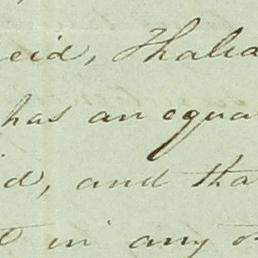 eid, Thalia
has an equa
id, and tha
t in any